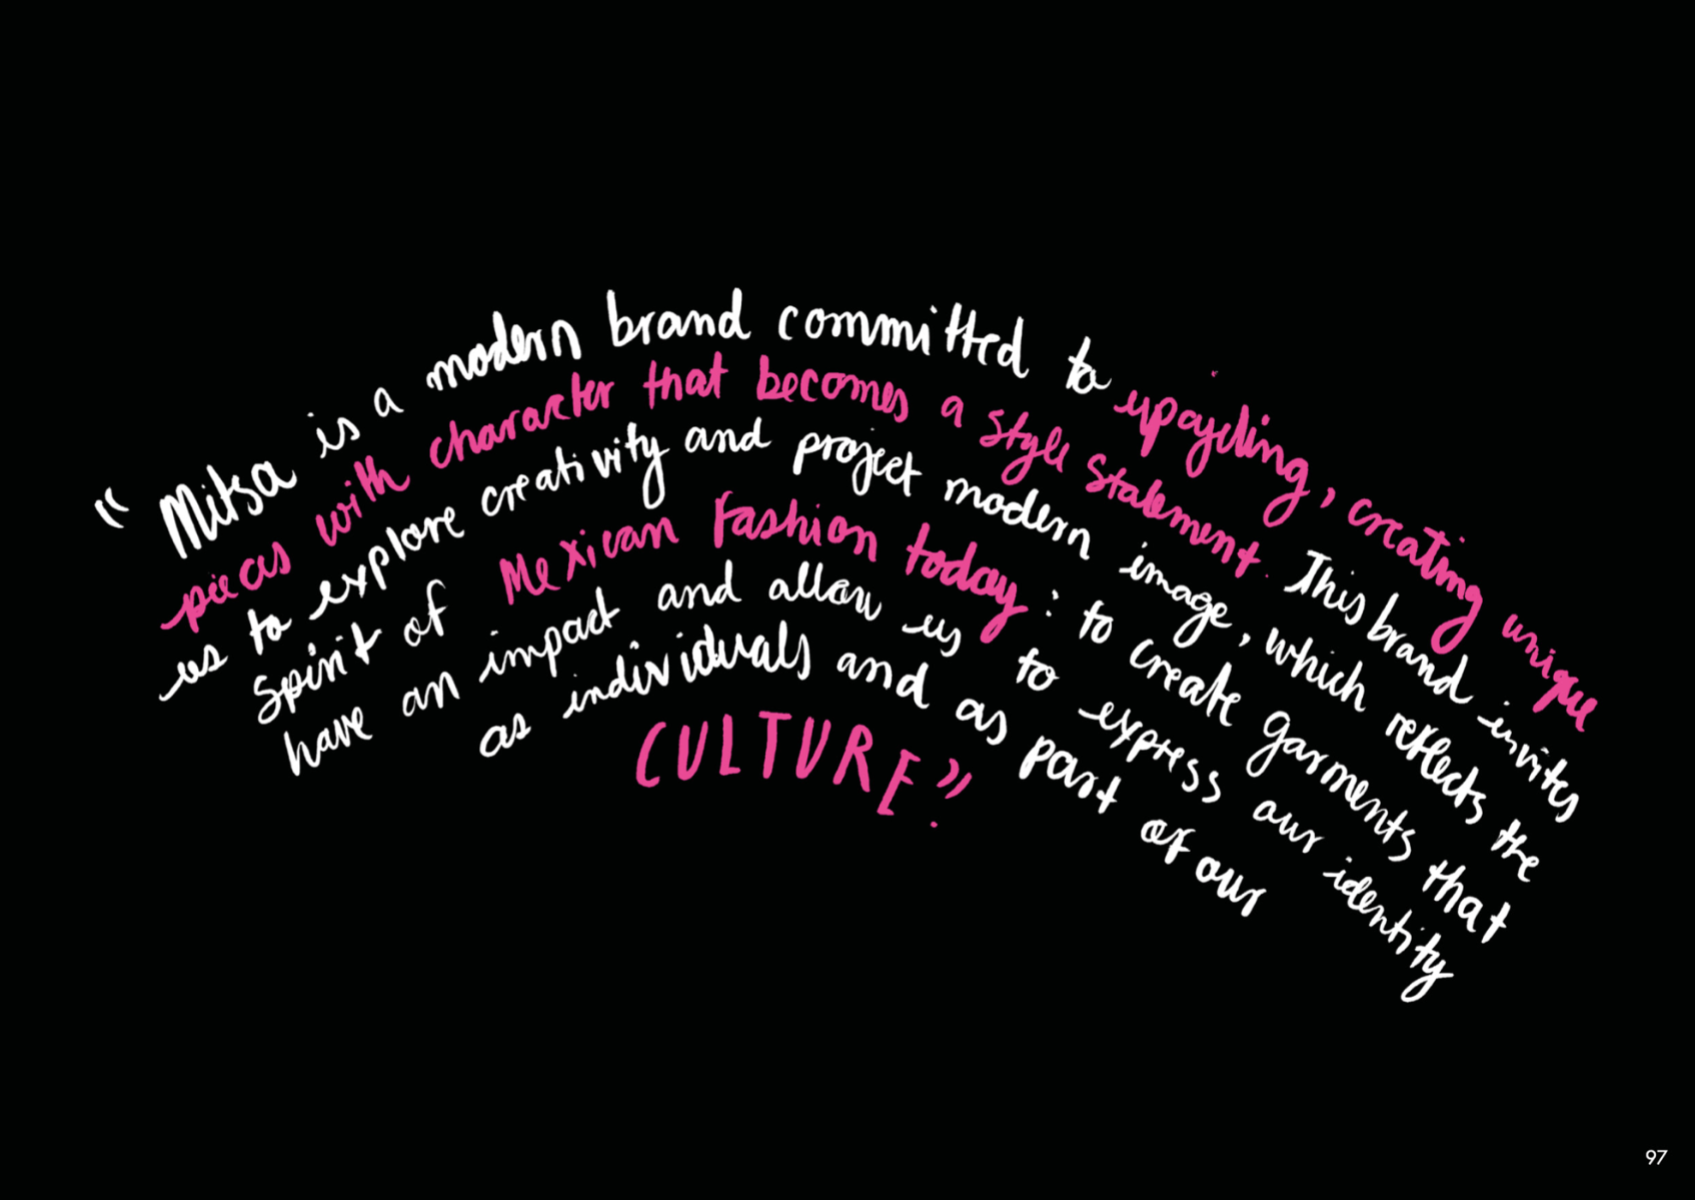 "Mitsa is a modern brand committed to upcycling, creating unique
pieces with character that becomes a style statement. This brand invites
us to explore creativity and project modern image, which reflects the
spirit of Mexican fashion today: to create garments that
have an impact and allow us to express our identity
as individuals and as part of our
CULTURE".
97